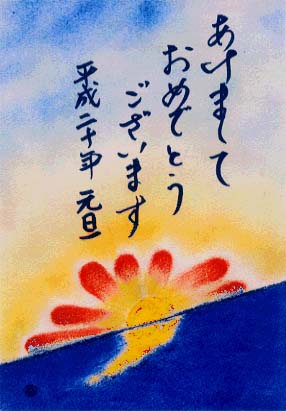 あけまして
おめでとう
ございます
平成二十年 元旦